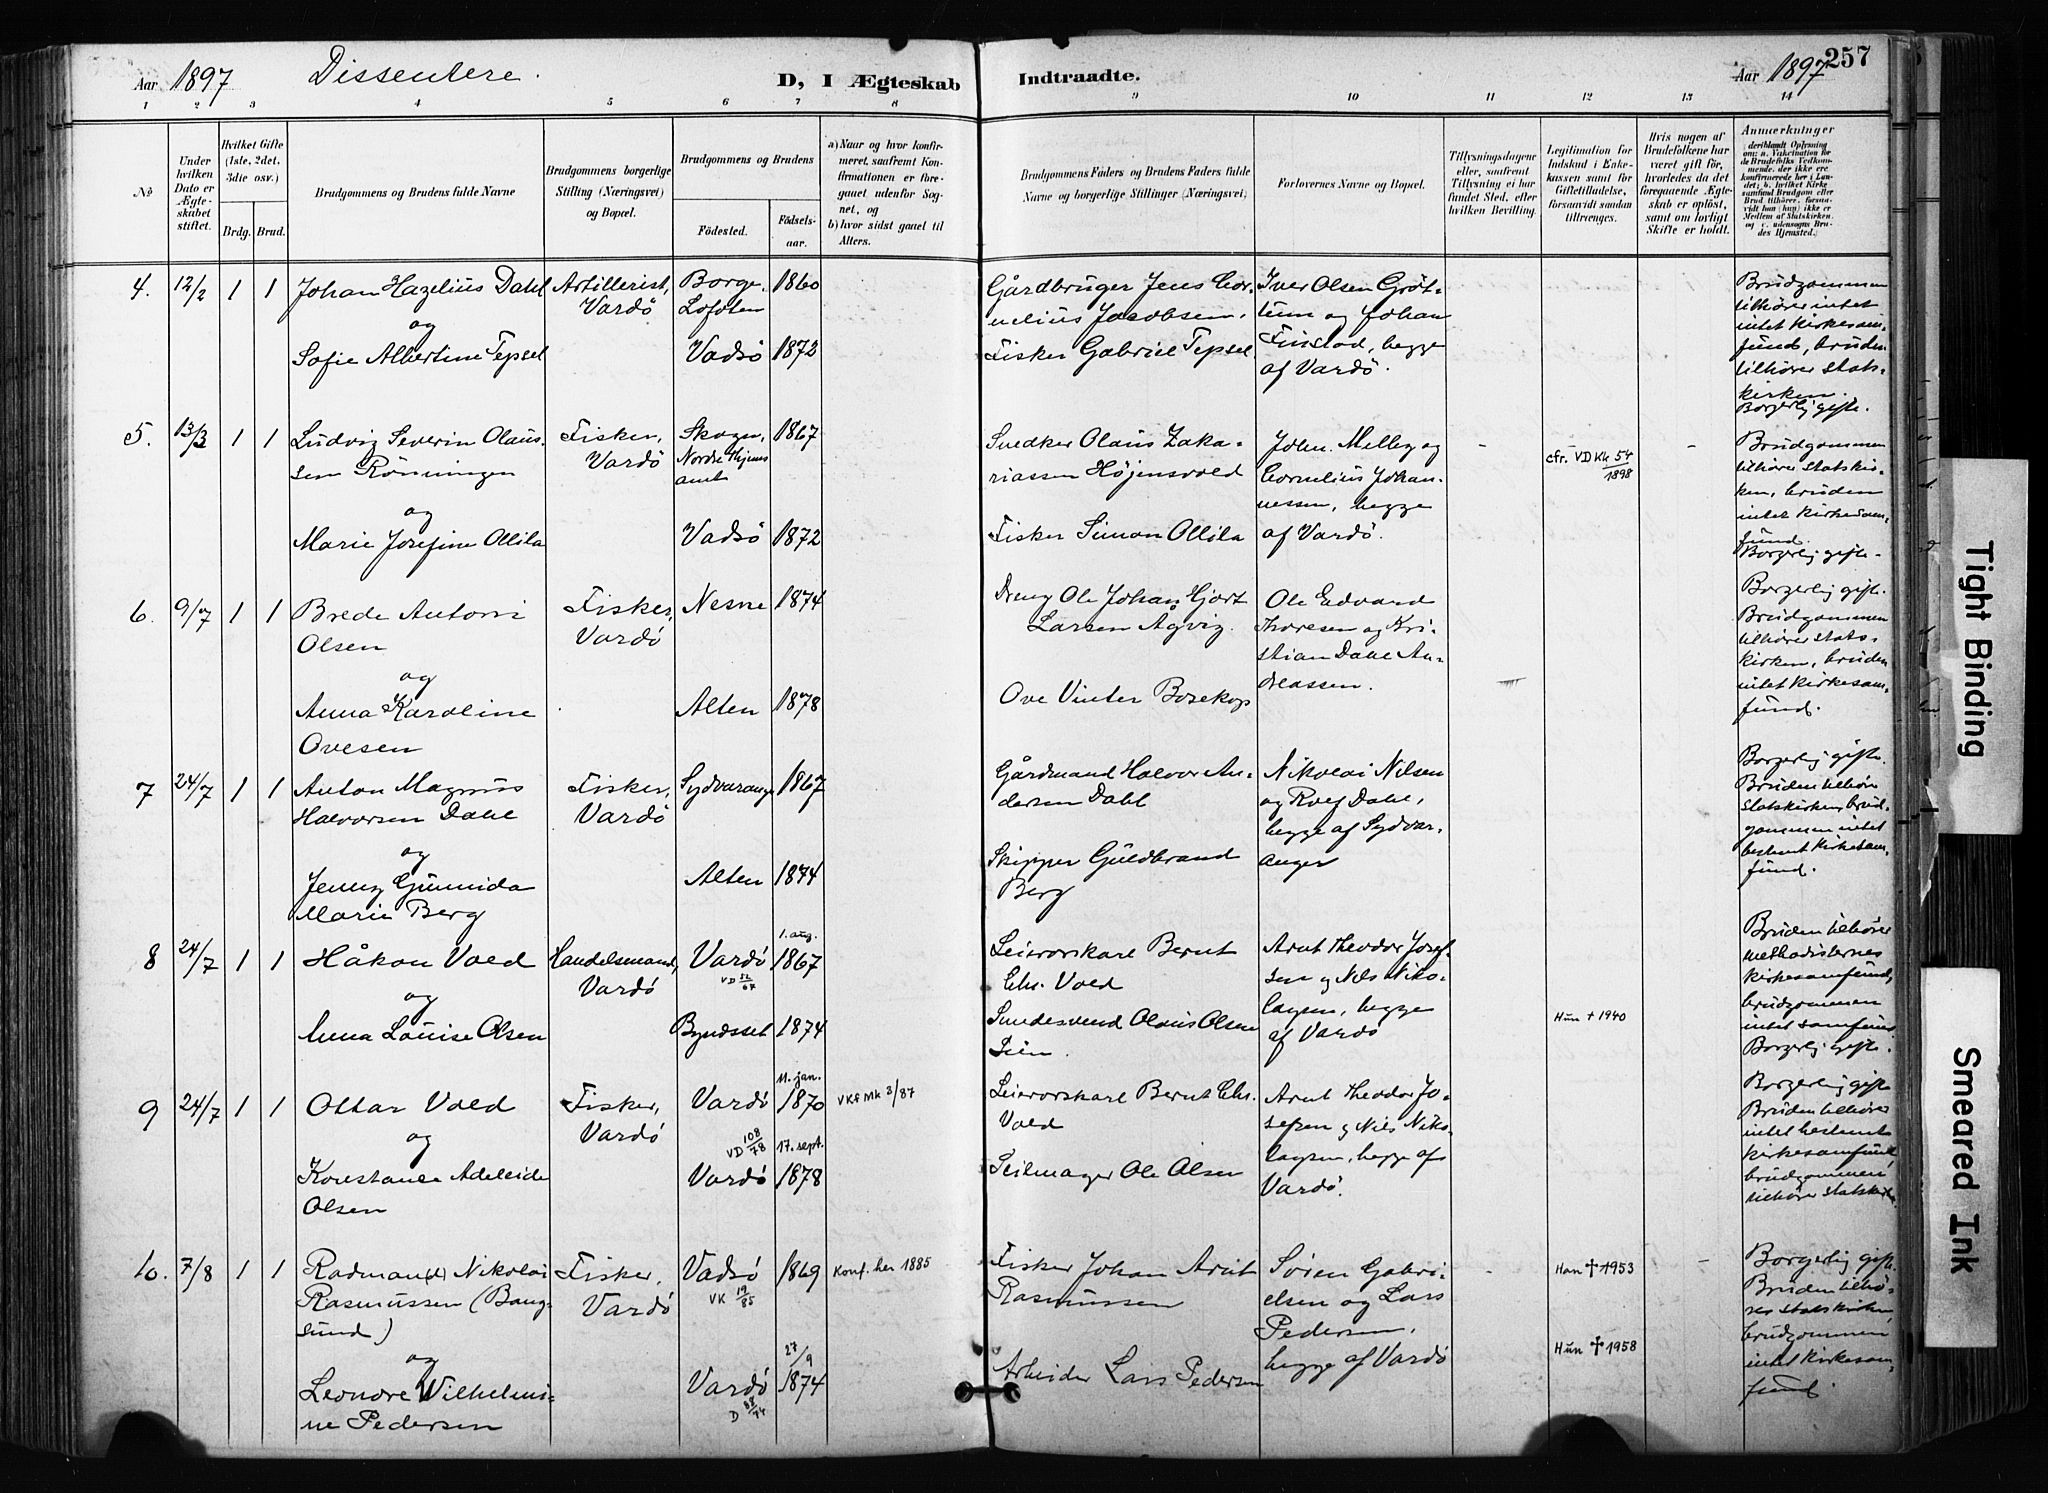 Aar 1897 Dissentere. D, I Ægteskab Indtraadte. Aar 1897 257
1 2 3 4 5 6 7 8 9 10 11 12 13 14
No
Under hvilken Dato er Ægteskabet stiftet.
Hvilket Gifte (1ste, 2det, 3die osv.)
Brdg. Brud.
Brudgommens og Brudens fulde Navne
Brudgommens borgerlige Stilling (Næringsvei) og Bopæl.
Brudgommens og Brudens
Födested. Födselsaar.
a) Naar og hvor konfirmeret, saafremt Konfirmationen er foregaaet udenfor Sognet, og
b) hvor sidst gaaet til Alters.
Brudgommens Faders og Brudens Faders fulde Navne og borgerlige Stillinger (Næringsvei)
Forlovernes Navne og Bopæl.
Tillysningsdagene eller, saafremt Tillysning ei har fundet Sted, efter hvilken Bevilling.
Legitimation for Indskud i Enkekassen samt for Giftetilladelse, forsaavidt saadan tiltrænges.
Hvis nogen af Brudefolkene har været gift för, hvorledes da det foregaaende Ægteskab er oplöst, samt om lovligt Skifte er holdt.
Anmerkninger
4. 12/2 1 1 Johan Hazelius Dahl
og
Sofie Albertine Tepsel
Artillerist,
Vardö
Borge,
Lofoten
1860
Vadsö 1872
Gårdbruger Jens Cornelius
Jacobsen.
Fisker Gabriel Tepsel
Iver Olsen Gröttum
og Johan
Finstad, begge
af Vardö.
Brudgommen
tilhører intet
intet kirkesamfund,
bruden
tilhører statskirken.
Borgerlig gifte.
5. 13/3 1 1 Ludvig Severin Olaussen
Rönningen
og
Marie Josefine Ollila
Fisker,
Vardö
Skogn,
Nordre Thjems
amt
1867
Vadsö 1872
Snedker Olaus Zakariassen
Höjensvold
Fisker Simon Ollila
John. Melby og
Cornelius Johannessen,
begge
af Vardö.
-
cfr. VD Kk 54/1898
-
Brudgommen
tilhører statskirken,
bruden
intet kirkesamfund.
Borgerlig gifte.
6. 9/7 1 1 Brede Antoni
Olsen
og
Anna Karoline
Ovesen
Fisker,
Vardö
Nesne 1874
Alten 1878
Dreng Ole Johan Hjort
Larsen Agvig.
Ove Vinter Bosekop
Ole Edvard
Thoresen og Kristian
Dahl Andreassen.
Borgerlig gifte.
Brudgommen
tilhører statskirken,
bruden
intet kirkesamfund.
7 24/7 1 1 Anton Magnus
Halvorsen Dahl
og
Jenny Gunnida
Marie Berg
Fisker,
Vardö
Sydvarang. 1867
Alten 1874
Gårdmand Halvor Andersen
Dahl
Skipper Guldbrand
Berg
Nikolai Nilsen
og Rolf Dahl,
begge af Sydvaranger
Borgerlig gifte.
Bruden tilhører
statskirken, brudgommen
intet
bestemt kirkesamfund.
8 24/7 1 1 Håkon Vold
og
Anna Louise Olsen
Handelsmand,
Vardö
Vardö
VD 52/67
1. aug.
1867
Byndsset 1874
Leierorskarl Bernt
Chr. Vold
Sundesvend Olaus Olsen
Lien.
Arnt Theodor Josefsen
og Nils Nikolaysen,
begge
af Vardö
Hun † 1940
Bruden tilhører
methodisternes
kirkesamfund,
brudgommen
intet samfund
Borgerlig gifte.
9 24/7 1 1 Ottar Vold
og
Konstance Adeleide
Olsen
Fisker,
Vardö
Vardö
VD 108/78
Vardö
11. jan.
1870
17. sept.
1878
VKf Mk 3/87
Leierorskarl Bernt Chr.
Vold
Seilmager Ole Olsen
Arnt Theodor Josefsen
og Nils Nikolaysen,
begge af
Vardö.
Borgerlig gifte
Bruden tilhører
intet bestemt
kirkesamfund
brudgommen
tilhører statskirken
10. 7/8 1 1 Radman(d) Nikolai
Rasmussen (Bangsund)
og
Leonore Wilhelmine
Pedersen
Fisker,
Vardö
Vadsö
VK 19/85
1869
Konf. her 1885
Vardö
D 88/74
27/9
1874
Fisker Johan Arnt
Rasmussen
Arbeider Lars Pedersen
Sören Gabrielsen
og Lars
Pedersen,
begge af Vardö
-
Han † 1953
Hun † 1958
-
Borgerlig gifte.
Bruden tilhører
statskirken
brudgommen
intet kirkesamfund.
Tight Binding
Smeared Ink